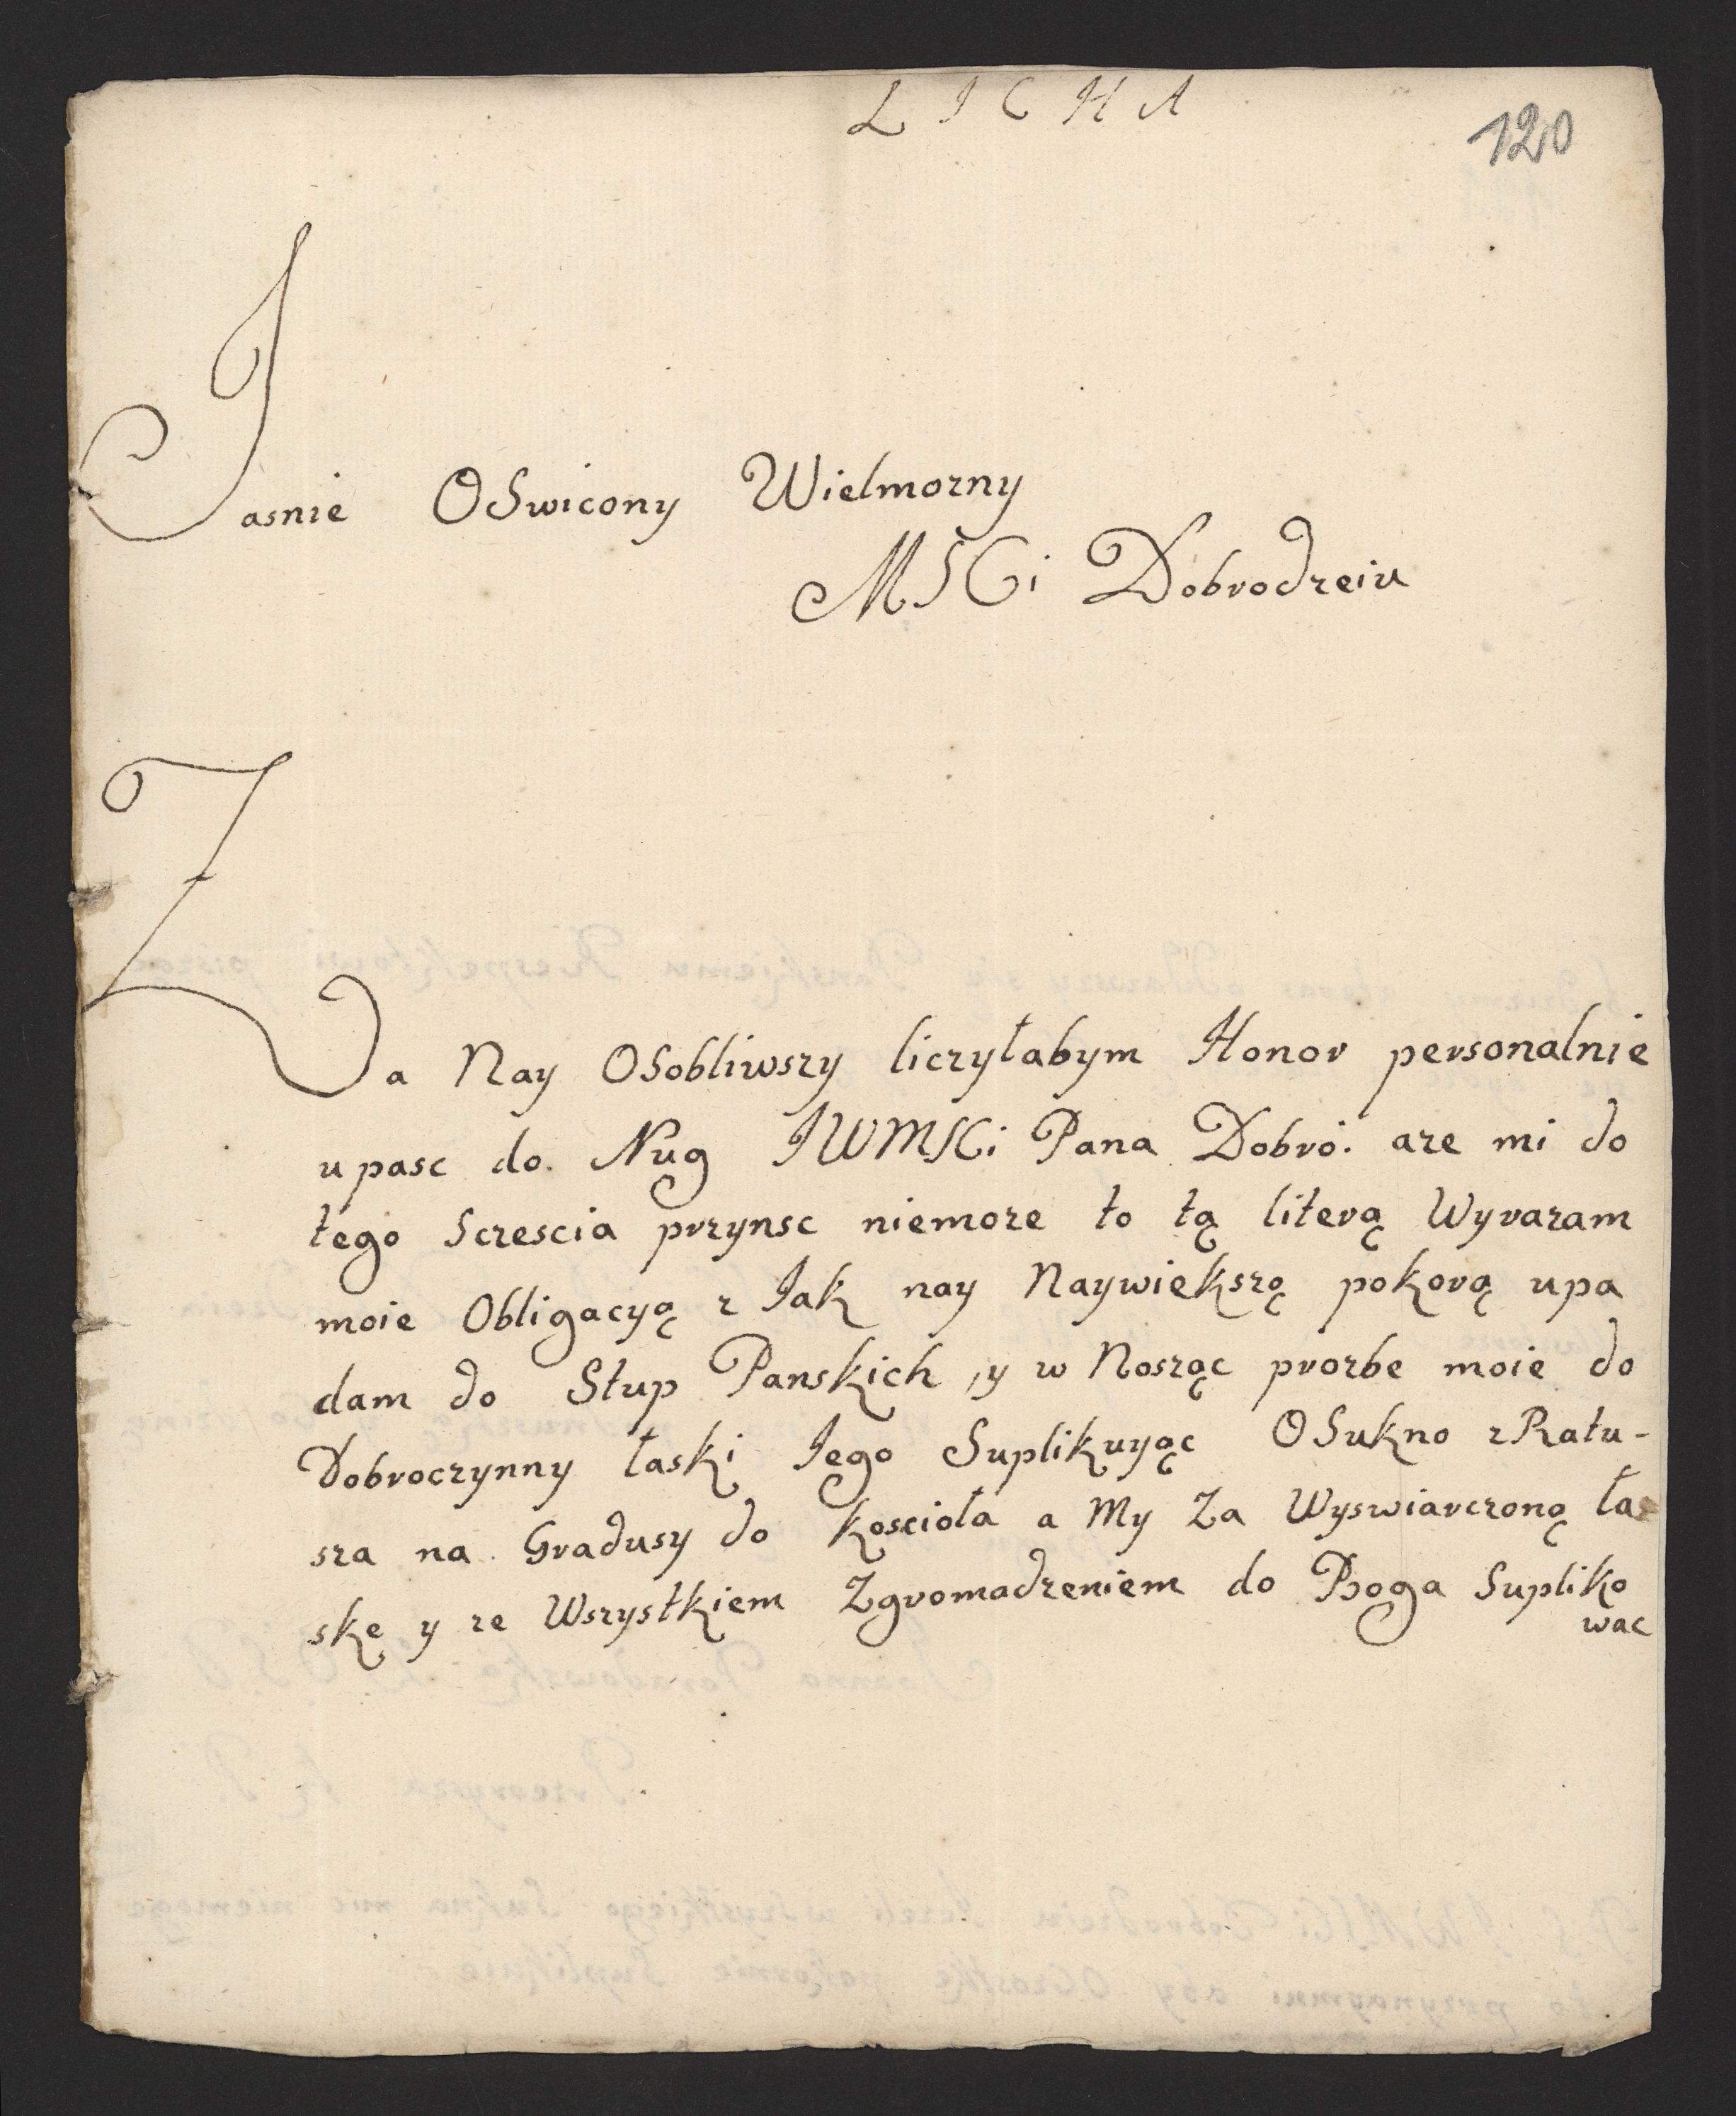 LICHA
120
Jasnie OSwicony Wielmozny
MSCi Dobrodzeiu
Za Nay OSobliwszy liczyłabym Honor personalnie
upasc do. Nug JWMSCi Pana Dobró. aze mi do
tego Sczescia przynsc niemoze to tą literą Wyrazam
moie Obligacyą z Iak nay Naywiekszą pokorą upa
dam do Stup Panskich, y w Nosząc prozbe moie do
Dobroczynny łaski Iego Suplikuyąc OSukno z Ratu-
sza na Gradusy do koscioła a My Za Wyswiarczoną ła
skę y ze Wszystkiem Zgromadzeniem do Boga Supliko
wac